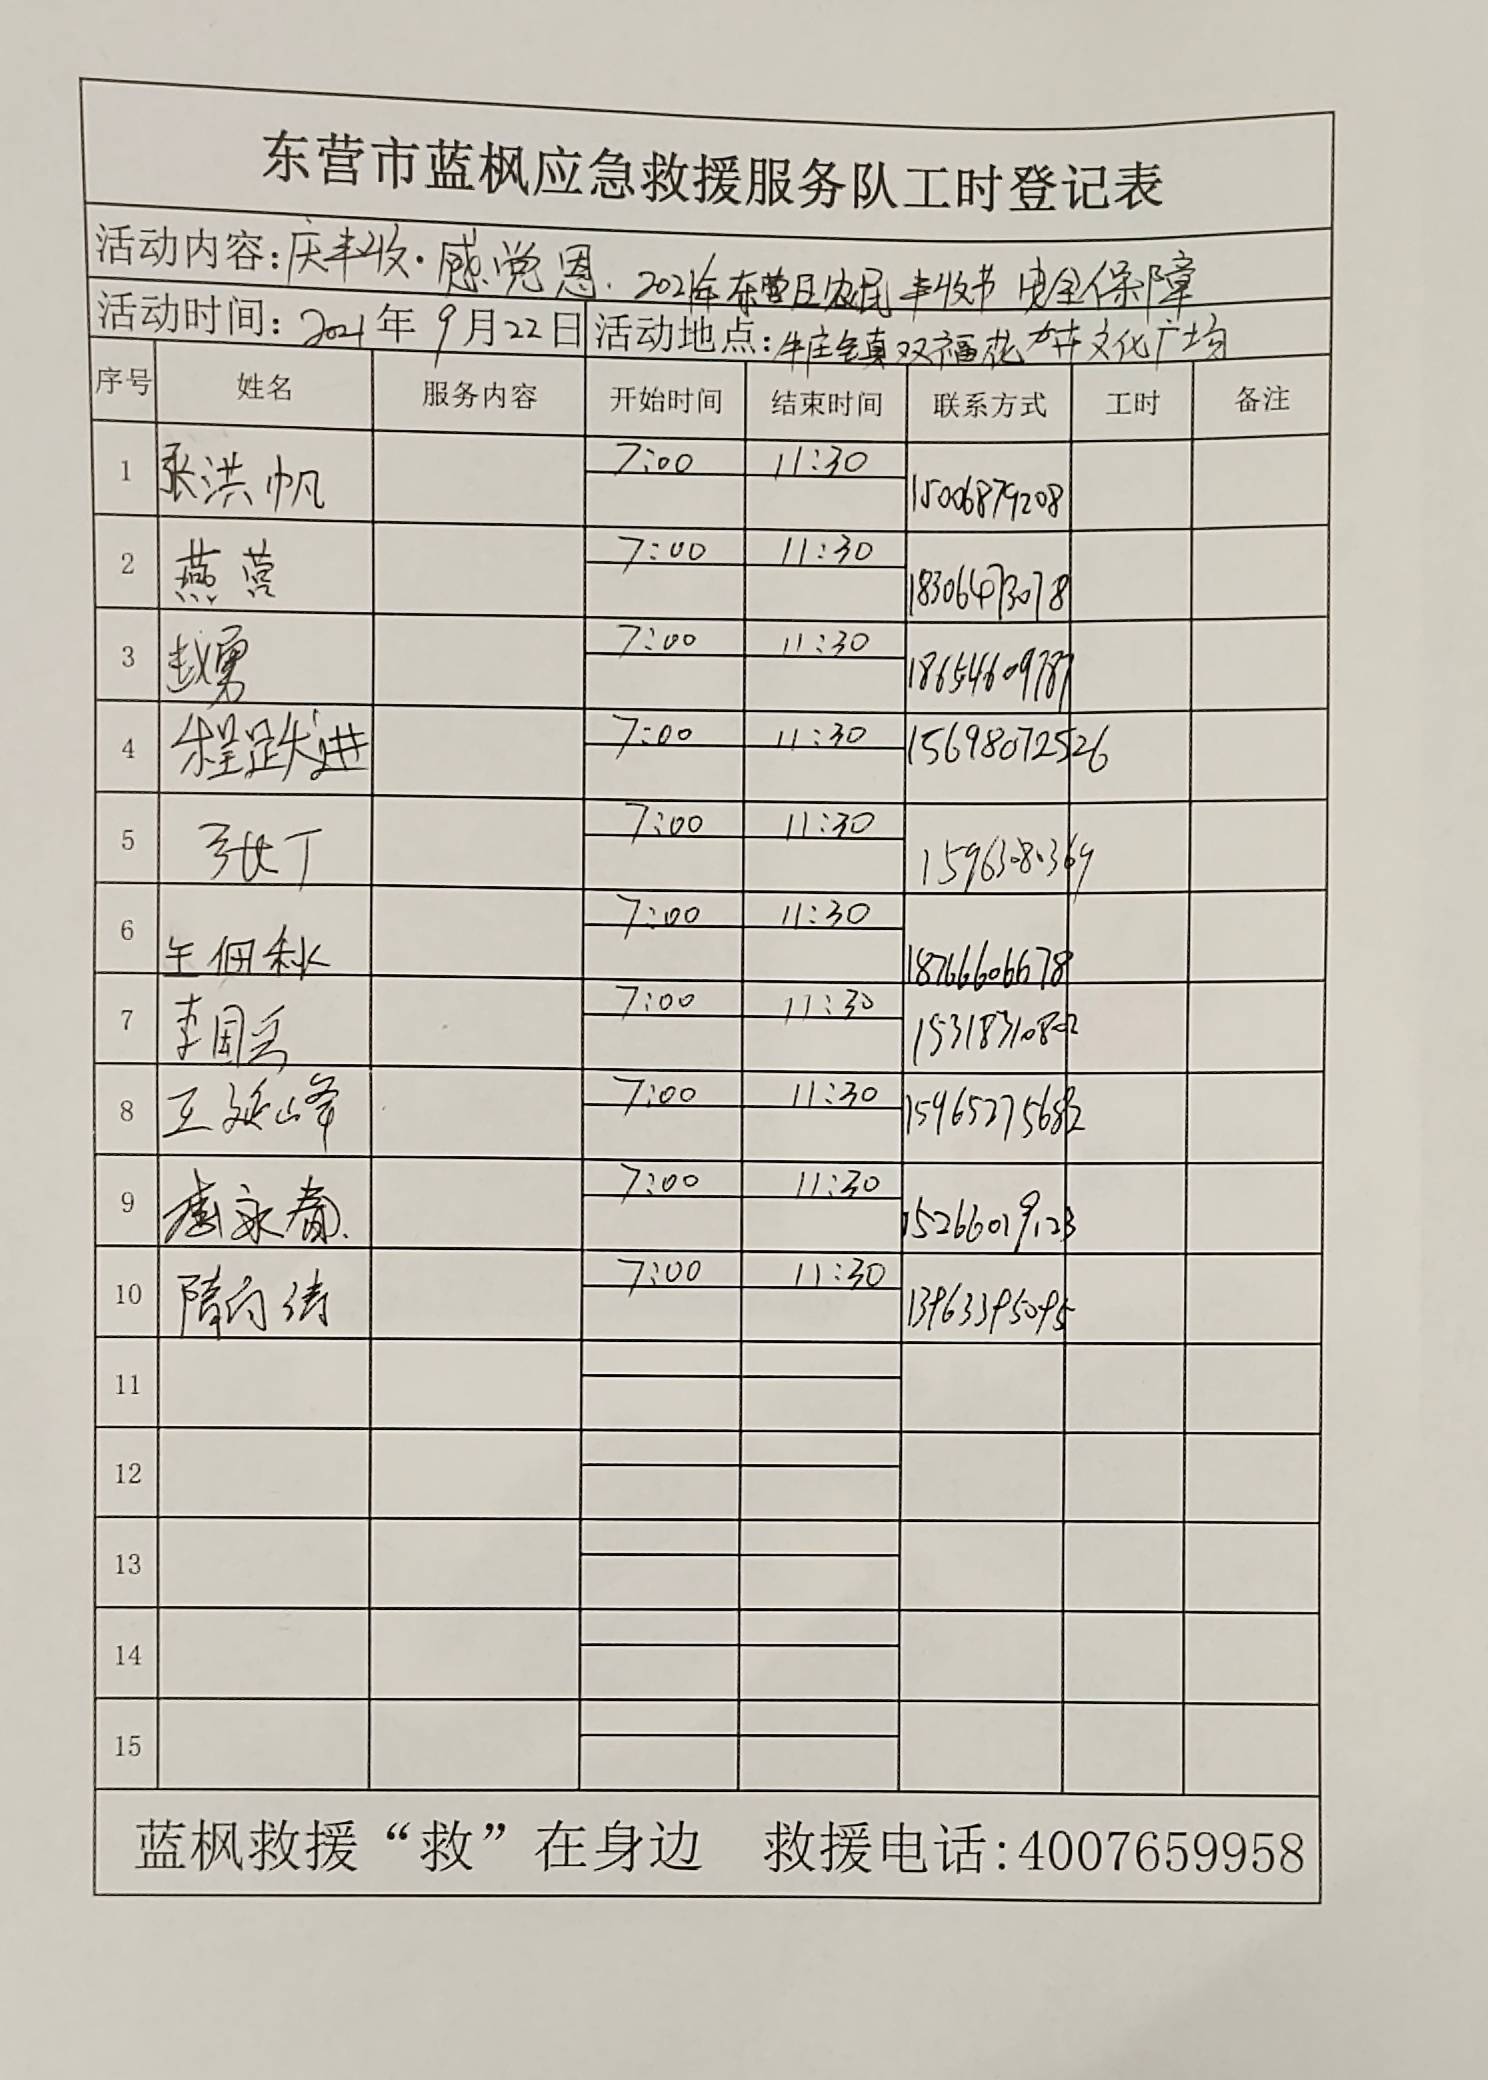 东营市蓝枫应急救援服务队工时登记表
活动内容:庆丰收·感党恩.2021年东营区农民丰收节 安全保障
活动时间:2021年9月22日 活动地点:牛庄镇双福花卉文化广场
序号 姓名 服务内容 开始时间 结束时间 联系方式 工时 备注
1 张洪帆 7:00 11:30 15006879208
2 燕营 7:00 11:30 18306473078
3 赵勇 7:00 11:30 18654609787
4 程跃进 7:00 11:30 15698072526
5 张丁 7:00 11:30
6 王佃秋 7:00 11:30 18766606678
7 李国 7:00 11:30
8 王延峰 7:00 11:30 15965275682
9 永春 7:00 11:30 15266019123
10 隋 涛 7:00 11:30 13963395095
11
12
13
14
15
蓝枫救援“救”在身边 救援电话:4007659958